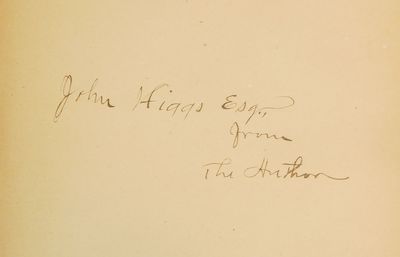 John Higgs Esq.,
from
The Author